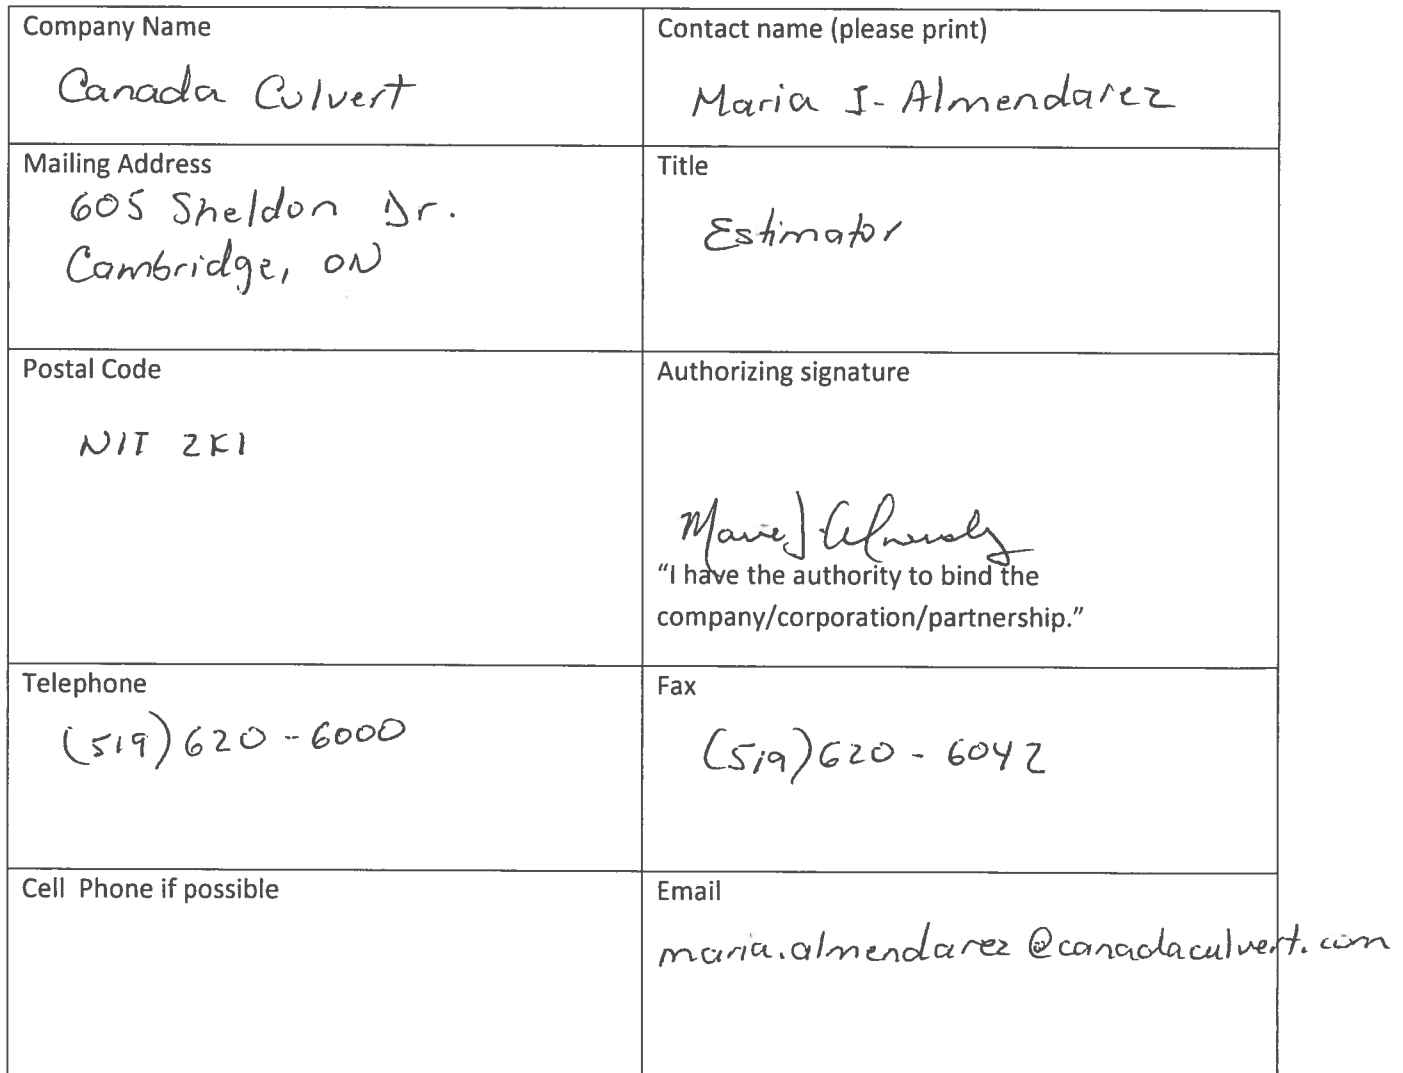 Company Name
Canada Culvert
Contact name (please print)
Maria I- Almendarez
Mailing Address
605 Sheldon Dr.
Cambridge, ON
Title
Estimator
Postal Code
N1T 2K1
Authorizing signature
"I have the authority to bind the
company/corporation/partnership."
Telephone
(519) 620-6000
Fax
(519) 620-6042
Cell Phone if possible
Email
maria.almendarez@canadaculvert.com